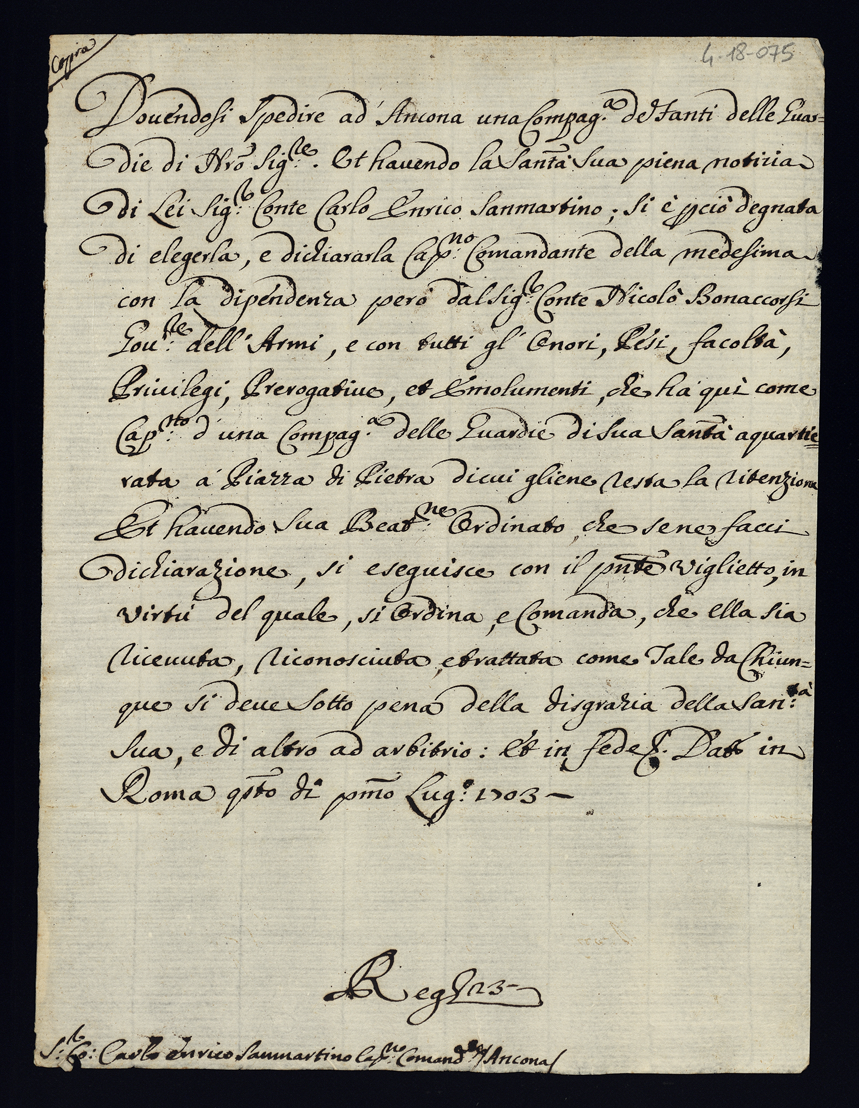 Coppia
4-18-075
Dovendosi Spedire ad Ancona una Compag.a de Fanti delle Guar=
die di Nrõ Sig.re. Et havendo la Santà Sua piena notizia
di Lei Sig.r Conte Carlo Enrico Sanmartino; si è pciò degnata
di elegerla, e dichiararla Cap.no Comandante della medesima
con la dipendenza però dal Sig.r Conte Nicolò Bonaccorsi
Gov.re dell'Armi, e con tutti gl'Onori, Pesi, facoltà,
Privilegi, Prerogative, et Emolumenti, che ha quì come
Cap.no d'una Compag.a delle Guardie di Sua Santà aquartie
rata á Piazza di Pietra di cui gliene resta la ritenzione
Et havendo Sua Beat.ne Ordinato, che se ne facci
dichiarazione, si eseguisce con il pnte Viglietto, in
virtù del quale, si Ordina, e Comanda, che ella sia
ricevuta, riconosciuta, e trattata come Tale da Chiun=
que si deve sotto pena della disgrazia della San:tà
Sua, e di altro ad arbitrio: Et in fede. Dat in
Roma qsto dì pmo Lug.o 1703 —
Reg 23
S.r Co: Carlo Enrico Sanmartino Cap.no Comand.e Ancona